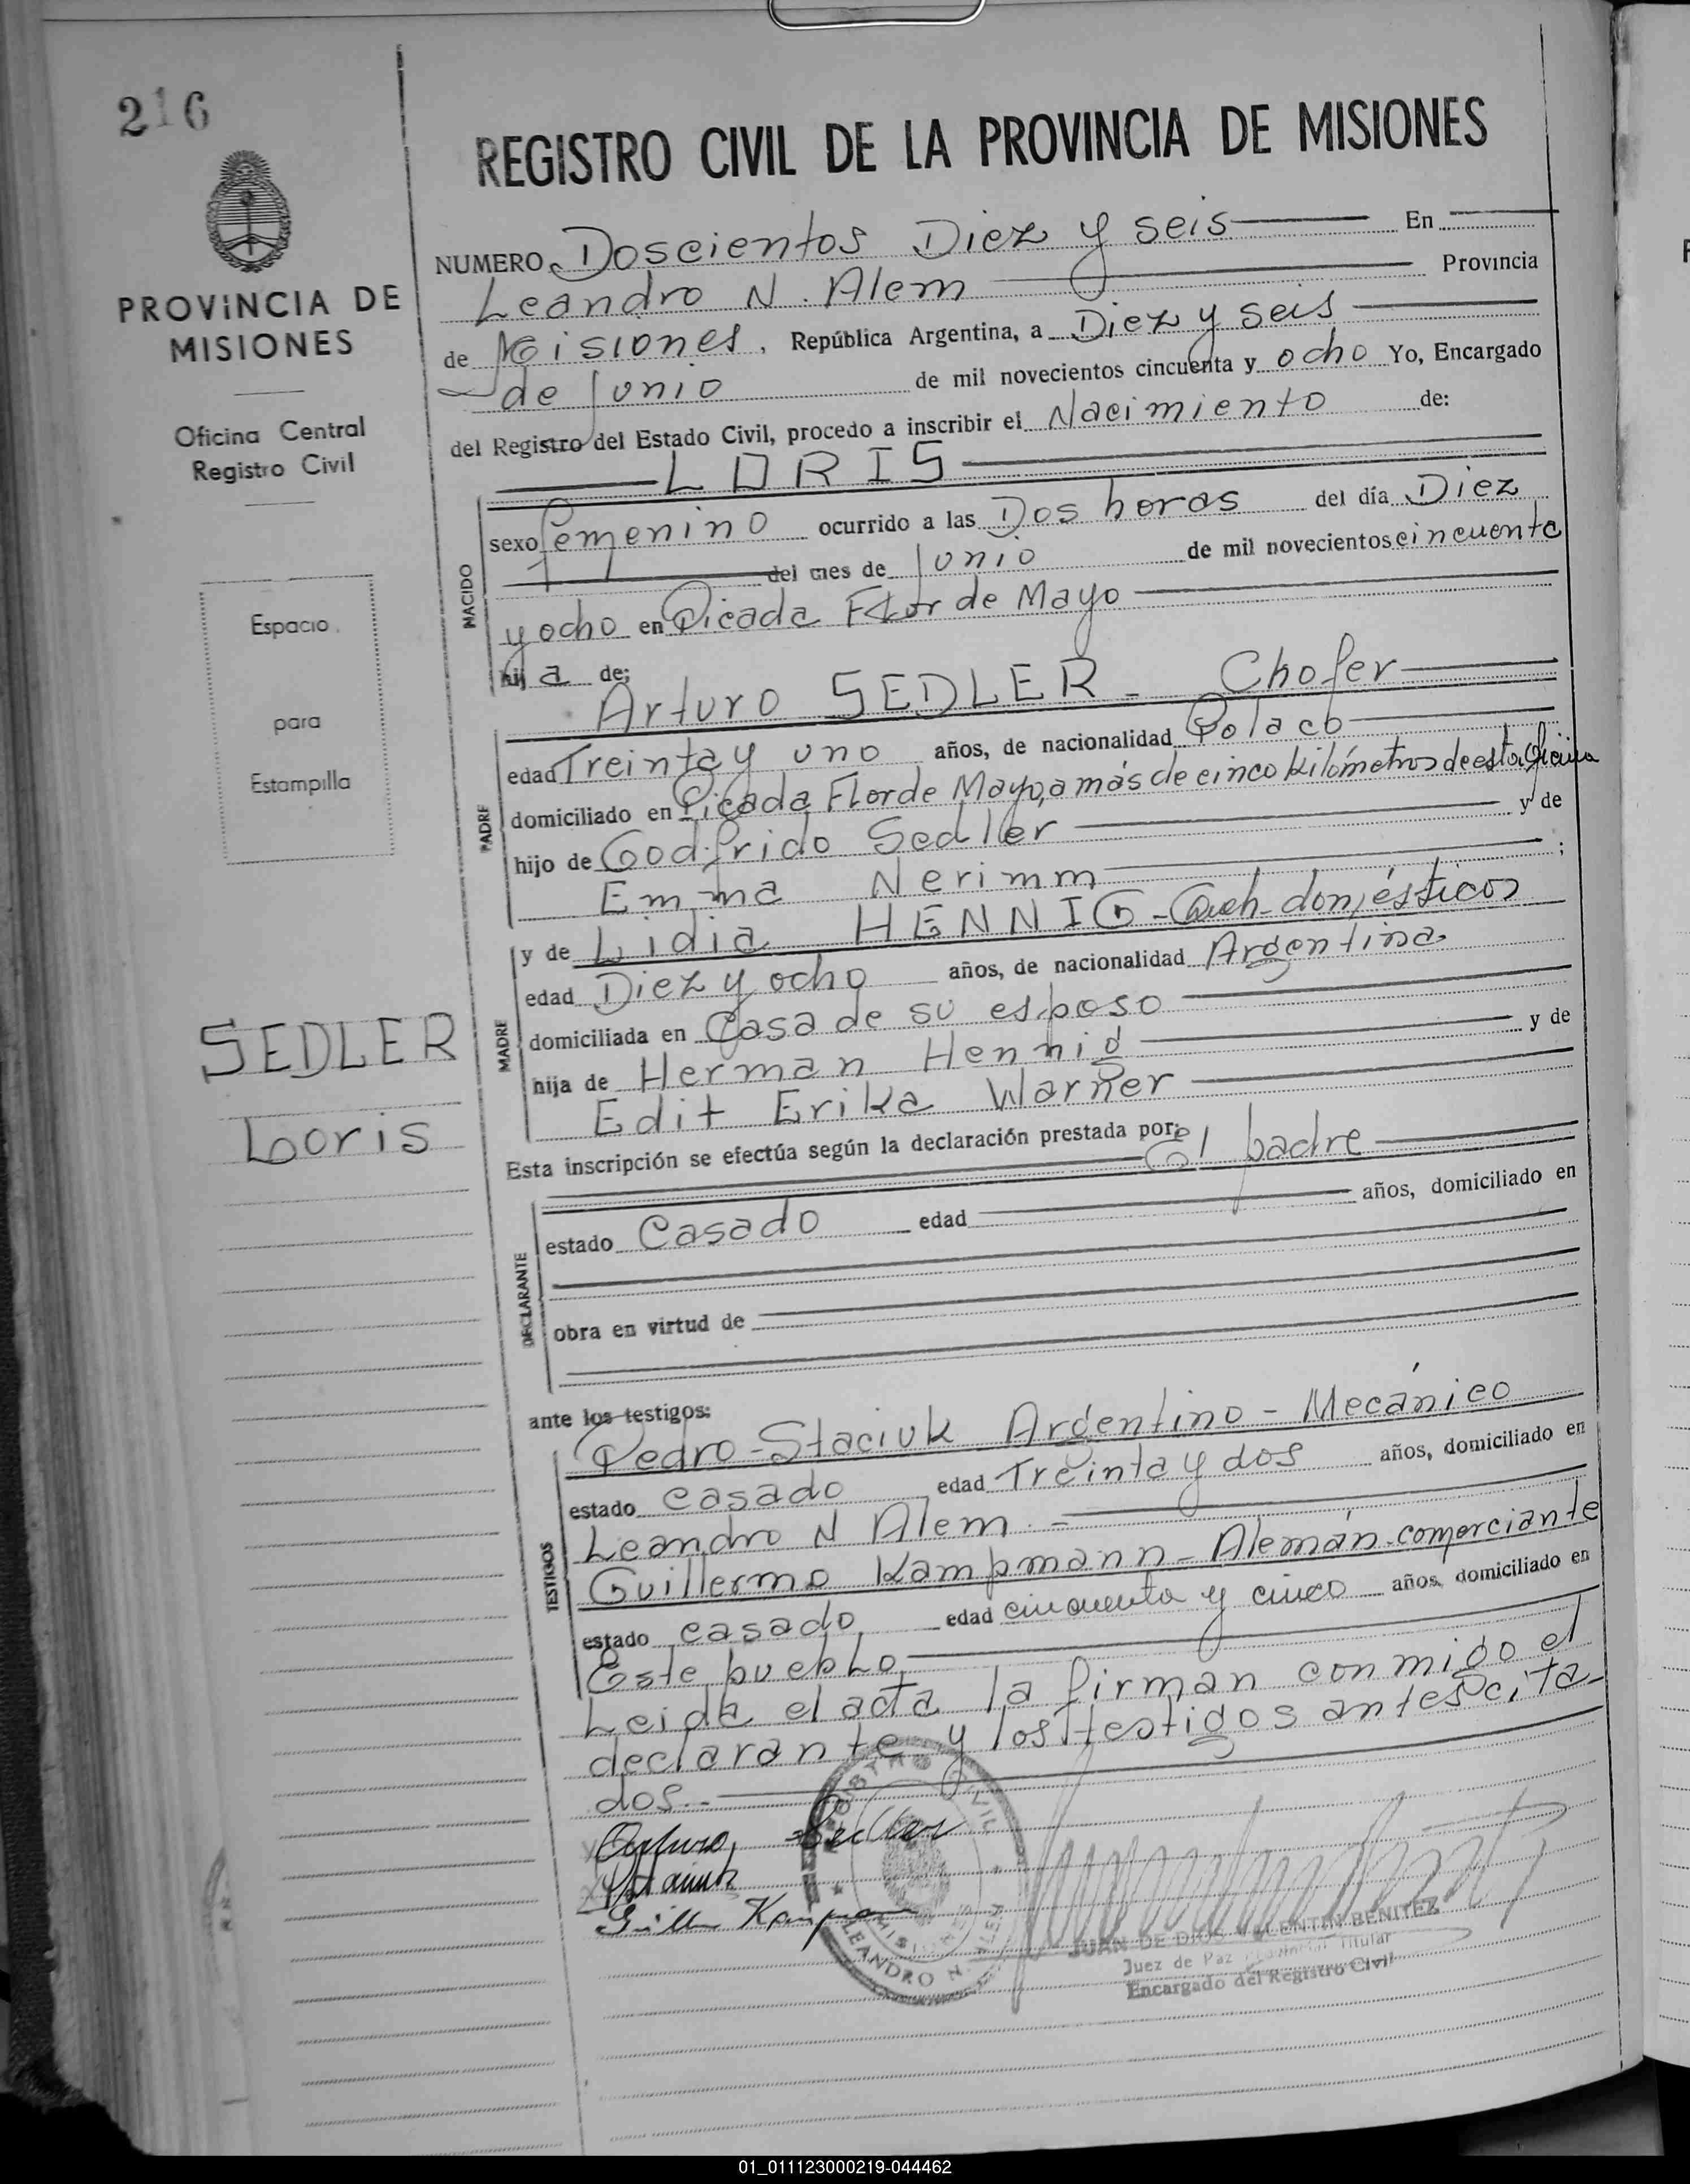 216
PROVINCIA DE
MISIONES
Oficina Central
Registro Civil
Espacio
para
Estampilla
SEDLER
Loris
REGISTRO CIVIL DE LA PROVINCIA DE MISIONES
NUMERO Doscientos Diez y seis En
Leandro N. Alem Provincia
de Misiones, República Argentina, a Diez y seis
de Junio de mil novecientos cincuenta y ocho Yo, Encargado
del Registro del Estado Civil, procedo a inscribir el Nacimiento de:
LORIS
NACIDO
sexo femenino ocurrido a las Dos horas del día Diez
del mes de Junio de mil novecientos cincuenta
y ocho en Picada Flor de Mayo
hija de;
Arturo SEDLER - Chofer
PADRE
edad Treinta y uno años, de nacionalidad Polaco
domiciliado en Picada Flor de Mayo, a más de cinco kilómetros de esta Oficina
hijo de Godfrido Sedler y de
Emma Nerimm ;
MADRE
y de Lidia HENNIG - Queh. domésticos
edad Diez y ocho años, de nacionalidad Argentina
domiciliada en Casa de su esposo
hija de Herman Hennig y de
Edit Erika Warner
Esta inscripción se efectúa según la declaración prestada por:
El padre
DECLARANTE
estado Casado edad años, domiciliado en
obra en virtud de
ante los testigos:
TESTIGOS
Pedro Staciuk Argentino - Mecánico
estado casado edad Treinta y dos años, domiciliado en
Leandro N Alem
Guillermo Kampmann - Alemán - comerciante
estado casado edad cincuenta y cinco años, domiciliado en
Este pueblo
Leida el acta la firman conmigo el
declarante y los testigos antes cita-
dos.-
Arturo Sedler
Staciuk
Guille Kampman
REGISTRO CIVIL
MISIONES
LEANDRO N. ALEM
JUAN DE DIOS VALENTIN BENITEZ
Juez de Paz Provincial Titular
Encargado del Registro Civil
01_011123000219-044462